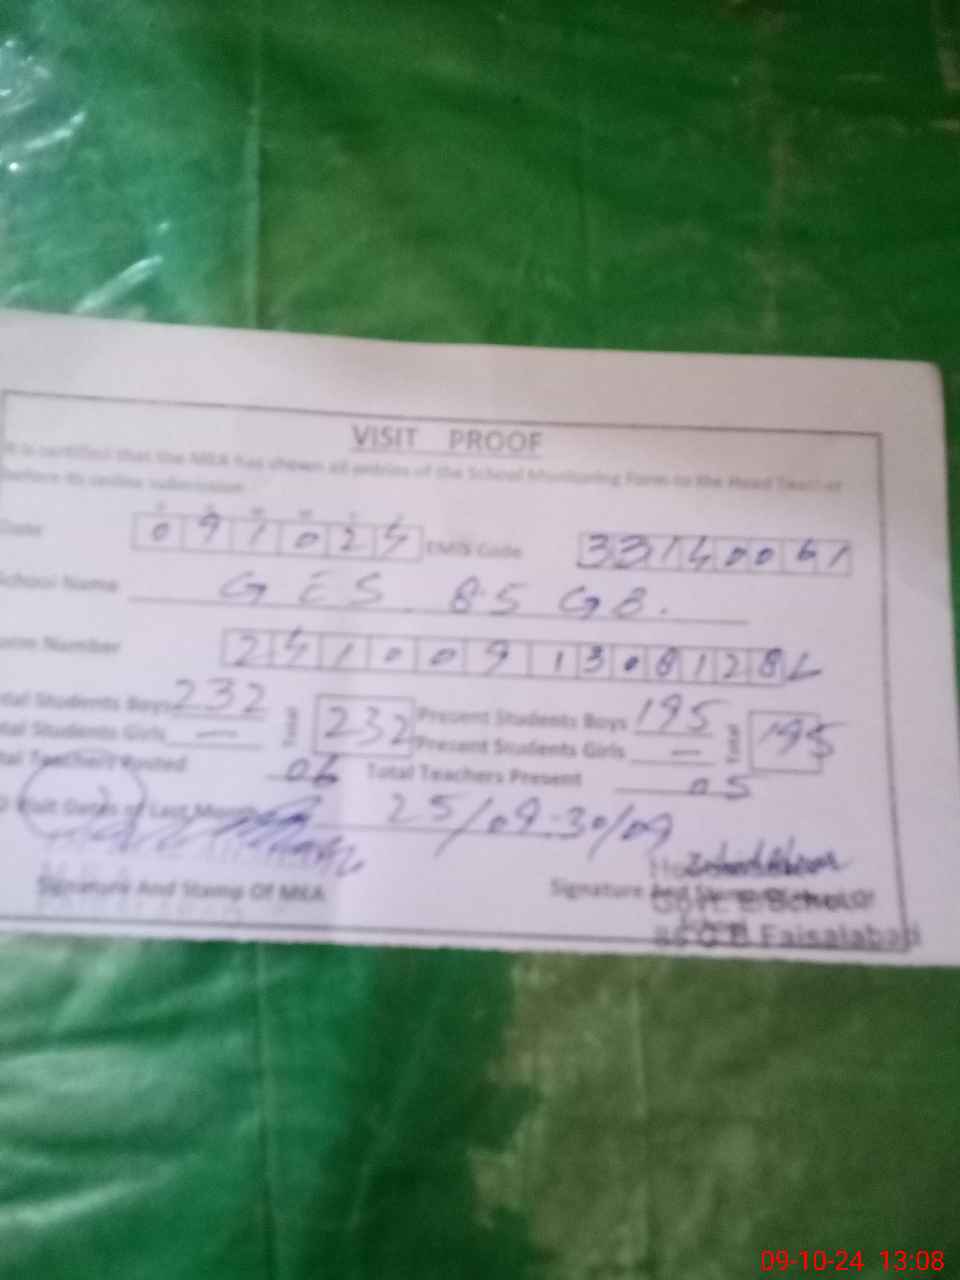 VISIT PROOF
It is certified that the MEA has shown all entries of the School Monitoring Form to the Head Teacher
before its online submission
Date 091024 EMIS Code 33140061
School Name GES 85 GB.
Form Number 241009130
Total Students Boys 232 Total 232 Present Students Boys 195 Total 195
Total Students Girls — Present Students Girls —
Total Teachers Posted 06 Total Teachers Present 05
Visit Dates of Last Month 25/09.30/09
Signature And Stamp Of MEA Signature And
Govt. E/School
85 G.B Faisalabad
09-10-24 13:08